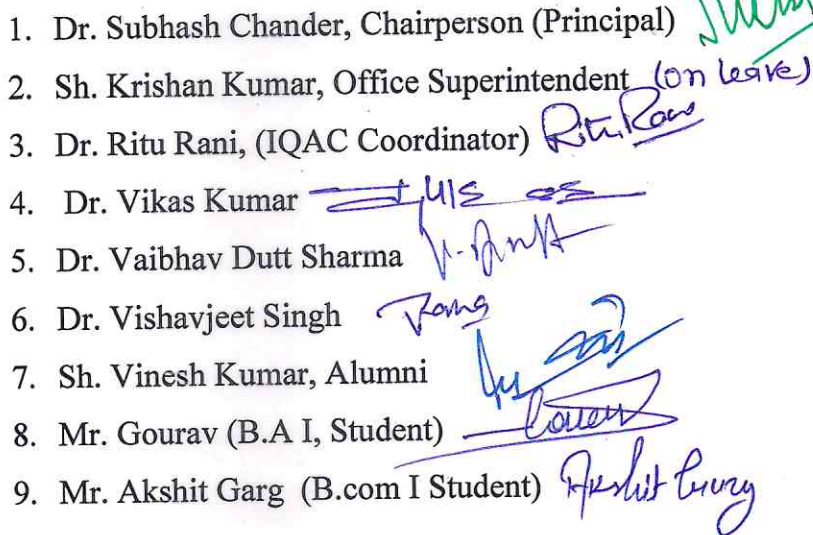 1. Dr. Subhash Chander, Chairperson (Principal)
2. Sh. Krishan Kumar, Office Superintendent (on leave)
3. Dr. Ritu Rani, (IQAC Coordinator) Ritu Rani
4. Dr. Vikas Kumar
5. Dr. Vaibhav Dutt Sharma
6. Dr. Vishavjeet Singh
7. Sh. Vinesh Kumar, Alumni
8. Mr. Gourav (B.A I, Student)
9. Mr. Akshit Garg (B.com I Student) Akshit Garg